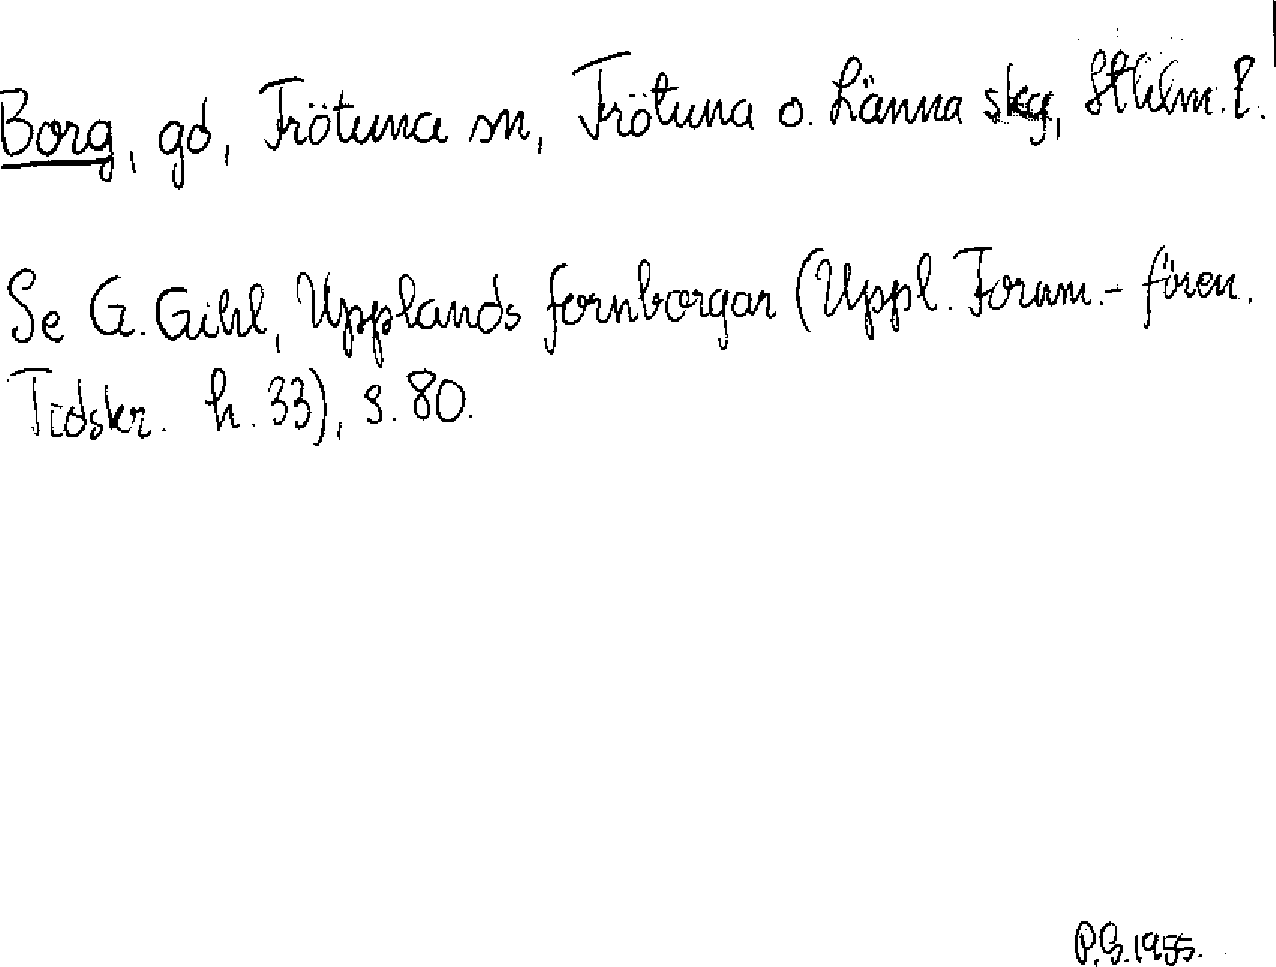 Borg, gd, Frötuna sn, Frötuna o. Länna skg, Sthlm. l.
Se G. Gihl, Upplands fornborgar (Uppl. Fornm.-fören.
Tidskr. h. 33), s. 80.
P.G. 1955.